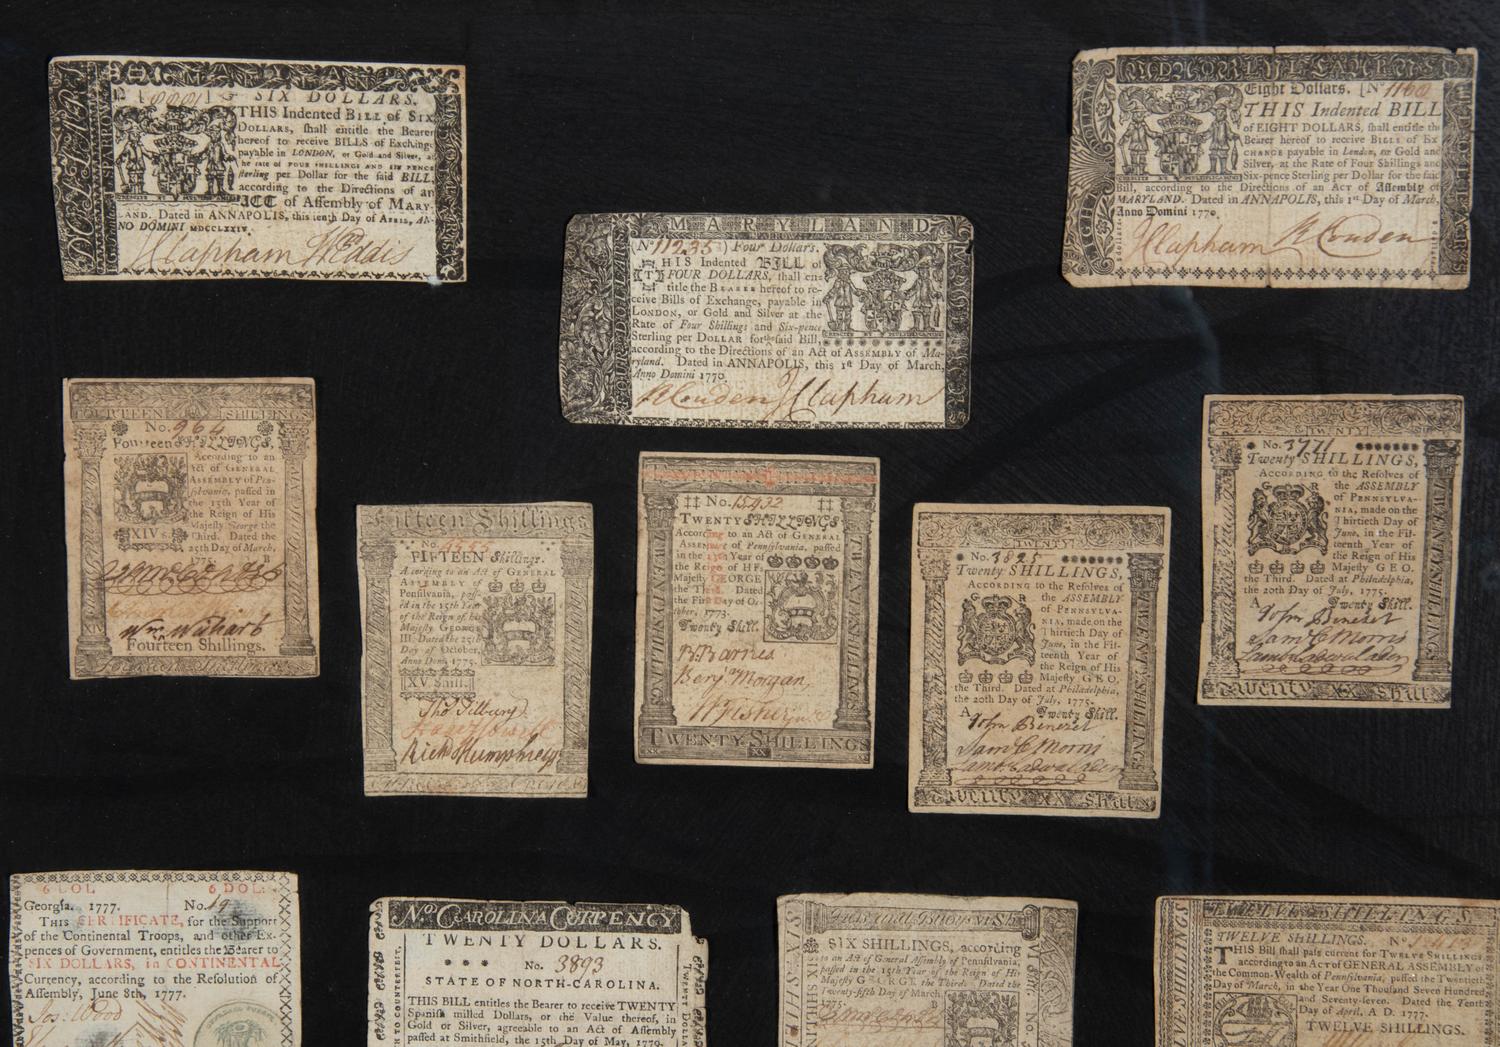 SIX DOLLARS.
THIS Indented BILL of SIX
DOLLARS, shall entitle the Bearer
hereof to receive BILLS of Exchange
payable in LONDON, or Gold and Silver, at
the rate of FOUR SHILLINGS AND SIX PENCE
sterling per Dollar for the said BILL,
according to the Directions of an
ACT of Assembly of MARY-
LAND. Dated in ANNAPOLIS, this tenth Day of APRIL, AN-
NO DOMINI MDCCLXXIV.
JClapham WEddis
MARYLAND
No 11235 Four Dollars.
THIS Indented BILL of
FOUR DOLLARS, shall en-
title the BEARER hereof to re-
ceive Bills of Exchange, payable in
LONDON, or Gold and Silver at the
Rate of Four Shillings and Six-pence
Sterling per DOLLAR for the said Bill,
according to the Directions of an Act of ASSEMBLY of Ma-
ryland. Dated in ANNAPOLIS, this 1st Day of March,
Anno Domini 1770.
RCouden JClapham
Eight Dollars. No 1160
THIS Indented BILL
of EIGHT DOLLARS, shall entitle the
Bearer hereof to receive BILLS of EX
CHANGE payable in London, or Gold and
Silver, at the Rate of Four Shillings and
Six-pence Sterling per Dollar for the said
Bill, according to the Directions of an ACT of Assembly of
MARYLAND. Dated in ANNAPOLIS, this 1st Day of March,
Anno Domini 1770.
JClapham RCouden
FOURTEEN SHILLINGS
No. 964
Fourteen SHILLINGS.
According to an
Act of GENERAL
ASSEMBLY of Pen-
sylvania, passed in
the 15th Year of
the Reign of His
Majesty George the
Third. Dated the
25th Day of March,
1775.
XIV s.
Wm Wishart
Fourteen Shillings.
Fifteen Shillings
No.
FIFTEEN Shillings.
According to an Act of GENERAL
ASSEMBLY of
Pensilvania, pass-
ed in the 15th Year
of the Reign of his
Majesty GEORGE
III. Dated the 25th
Day of October,
Anno Dom. 1775.
XV Shill.
Tho Tilbury
Richd Humphreys
No. 15432
TWENTY SHILLINGS
According to an Act of GENERAL
ASSEMBLY of Pennsylvania, passed
in the 13th Year of
the Reign of HIS
Majesty GEORGE
the Third. Dated
the First Day of Oc-
tober, 1773.
Twenty Shill.
B. Barnes
Benj. Morgan,
TWENTY SHILLINGS
XX XX
TWENTY
No. 3825
Twenty SHILLINGS,
ACCORDING to the Resolves of
the ASSEMBLY
of PENNSYLVA-
NIA, made on the
Thirtieth Day of
June, in the Fif-
teenth Year of
the Reign of His
Majesty GEO.
the Third. Dated at Philadelphia,
the 20th Day of July, 1775.
A Twenty Shill.
John Benezet
Sam C Morris
Lamb Cadwalader
Twenty XX Shils
TWENTY
No. 3771
Twenty SHILLINGS,
ACCORDING to the Resolves of
the ASSEMBLY
of PENNSYLVA-
NIA, made on the
Thirtieth Day of
June, in the Fif-
teenth Year of
the Reign of His
Majesty GEO.
the Third. Dated at Philadelphia,
the 20th Day of July, 1775.
A Twenty Shill.
John Benezet
Sam C Morris
Lamb Cadwalader
Twenty XX Shils
6 DOL 6 DOL.
Georgia. 1777. No.
THIS CERTIFICATE, for the Support
of the Continental Troops, and other Ex-
pences of Government, entitles the Bearer to
SIX DOLLARS, in CONTINENTAL
Currency, according to the Resolution of
Assembly, June 8th, 1777.
Jos: Wood
No CAROLINA CURRENCY
TWENTY DOLLARS.
No. 3893
STATE OF NORTH-CAROLINA.
THIS BILL entitles the Bearer to receive TWENTY
Spanish milled Dollars, or the Value thereof, in
Gold or Silver, agreeable to an Act of Assembly
passed at Smithfield, the 15th Day of May, 1779.
SIX SHILLINGS, according
to an Act of General Assembly of Pennsylvania,
passed in the 15th Year of the Reign of His
Majesty GEORGE the Third. Dated the
Twenty-fifth Day of March,
1775.
TWELVE SHILLINGS
TWELVE SHILLINGS. No
THIS Bill shall pass current for TWELVE SHILLINGS
according to an ACT of GENERAL ASSEMBLY of
the Common-Wealth of Pennsylvania, passed the Twentieth
Day of March, in the Year One Thousand Seven Hundred
and Seventy-seven. Dated the Tenth
Day of April, A. D. 1777.
TWELVE SHILLINGS.